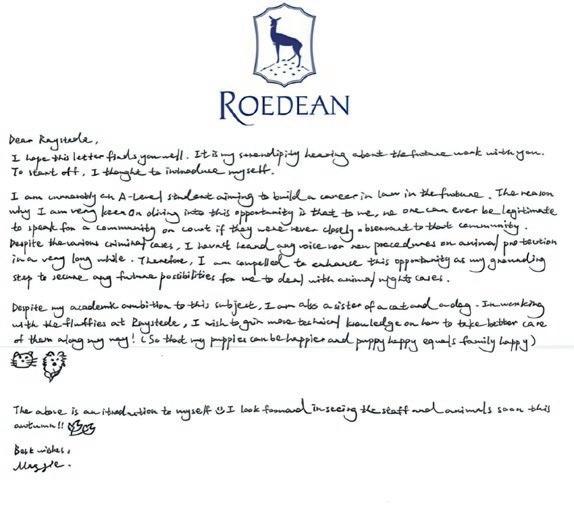 ROEDEAN
Dear Raystede,
I hope this letter finds you well. It is my serendipity hearing about the future work with you.
To start off, I thought to introduce myself.
I am currently an A-Level student aiming to build a career in law in the future. The reason
why I am very keen on diving into this opportunity is that to me, no one can ever be legitimate
to speak for a community on court if they were never closely observant to that community.
Despite the various criminal cases, I haven't heard any voice nor new procedures on animal protection
in a very long while. Therefore, I am compelled to enhance this opportunity as my grounding
step to secure any future possibilities for me to deal with animal rights cases.
Despite my academic ambition to this subject, I am also a sister of a cat and a dog. In working
with the fluffies at Raystede, I wish to gain more technical knowledge on how to take better care
of them along my way! (So that my puppies can be happier and puppy happy equals family happy)
The above is an introduction to myself I look forward in seeing the staff and animals soon this
autumn!!
Best wishes,
Maggie.